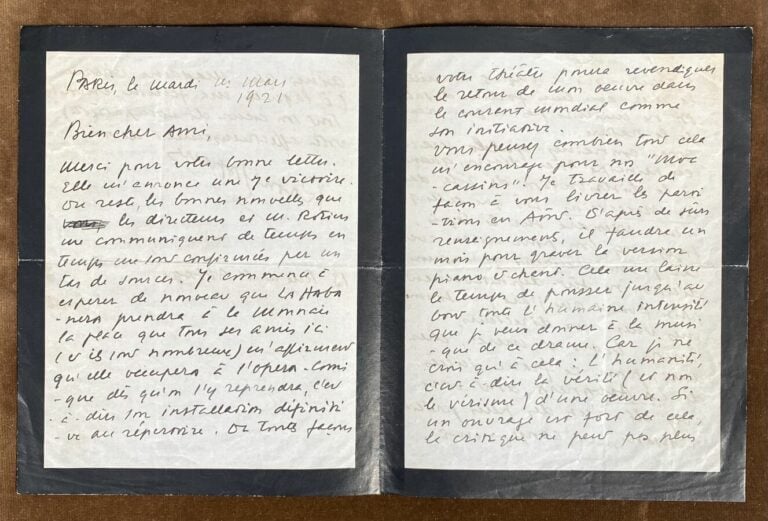 PARIS, le mardi 1er Mars
1921
Bien cher Ami,
Merci pour votre bonne lettre.
Elle m'annonce une 7e victoire.
Du reste, les bonnes nouvelles que
les directeurs et M.
me communiquent de temps en
temps me sont confirmées par un
tas de sources. Je commence à
esperer de nouveau que LA HABA
-NERA prendra à la Monnaie
la place que tous ses amis ici
(et ils sont nombreux) m'affirment
qu'elle occupera à l'Opera-Comi
-que dès qu'on l'y reprendra, c'est
-à-dire son installation définiti
-ve au répertoire. De toutes façons
votre théâtre pourra revendiquer
le retour de mon oeuvre dans
le courant mondial comme
son initiative.
Vous pensez combien tout cela
m'encourage pour nos "Moc
-cassins". Je travaille de
façon à vous livrer les parti
-tions en Août. D'après de sûrs
renseignements, il faudra un
mois pour graver la version
piano & chant. Cela me laisse
le temps de pousser jusqu'au
bout toute l'humaine intensité
que je veux donner à la musi
-que de ce drame. Car je ne
crois qu'à cela : L'humanité,
c'est-à-dire la vérité (et non
le vérisme) d'une oeuvre. Si
un ouvrage est fort de cela,
la critique ne peut pas plus